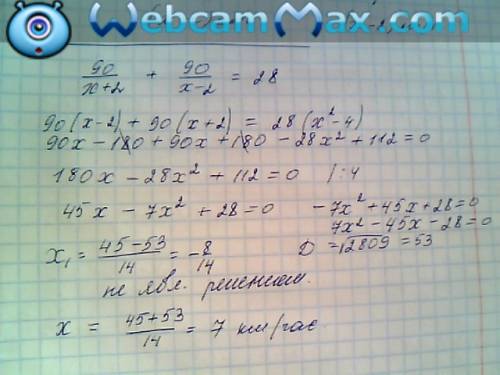 WebcamMax.com
90/(x+2) + 90/(x-2) = 28
90(x-2) + 90(x+2) = 28(x²-4)
90x - 180 + 90x + 180 - 28x² + 112 = 0
180x - 28x² + 112 = 0 /:4
45x - 7x² + 28 = 0
-7x² + 45x + 28 = 0
7x² - 45x - 28 = 0
D = √2809 = 53
x₁ = (45-53)/14 = -8/14
не явл. решением.
x = (45+53)/14 = 7 км/час